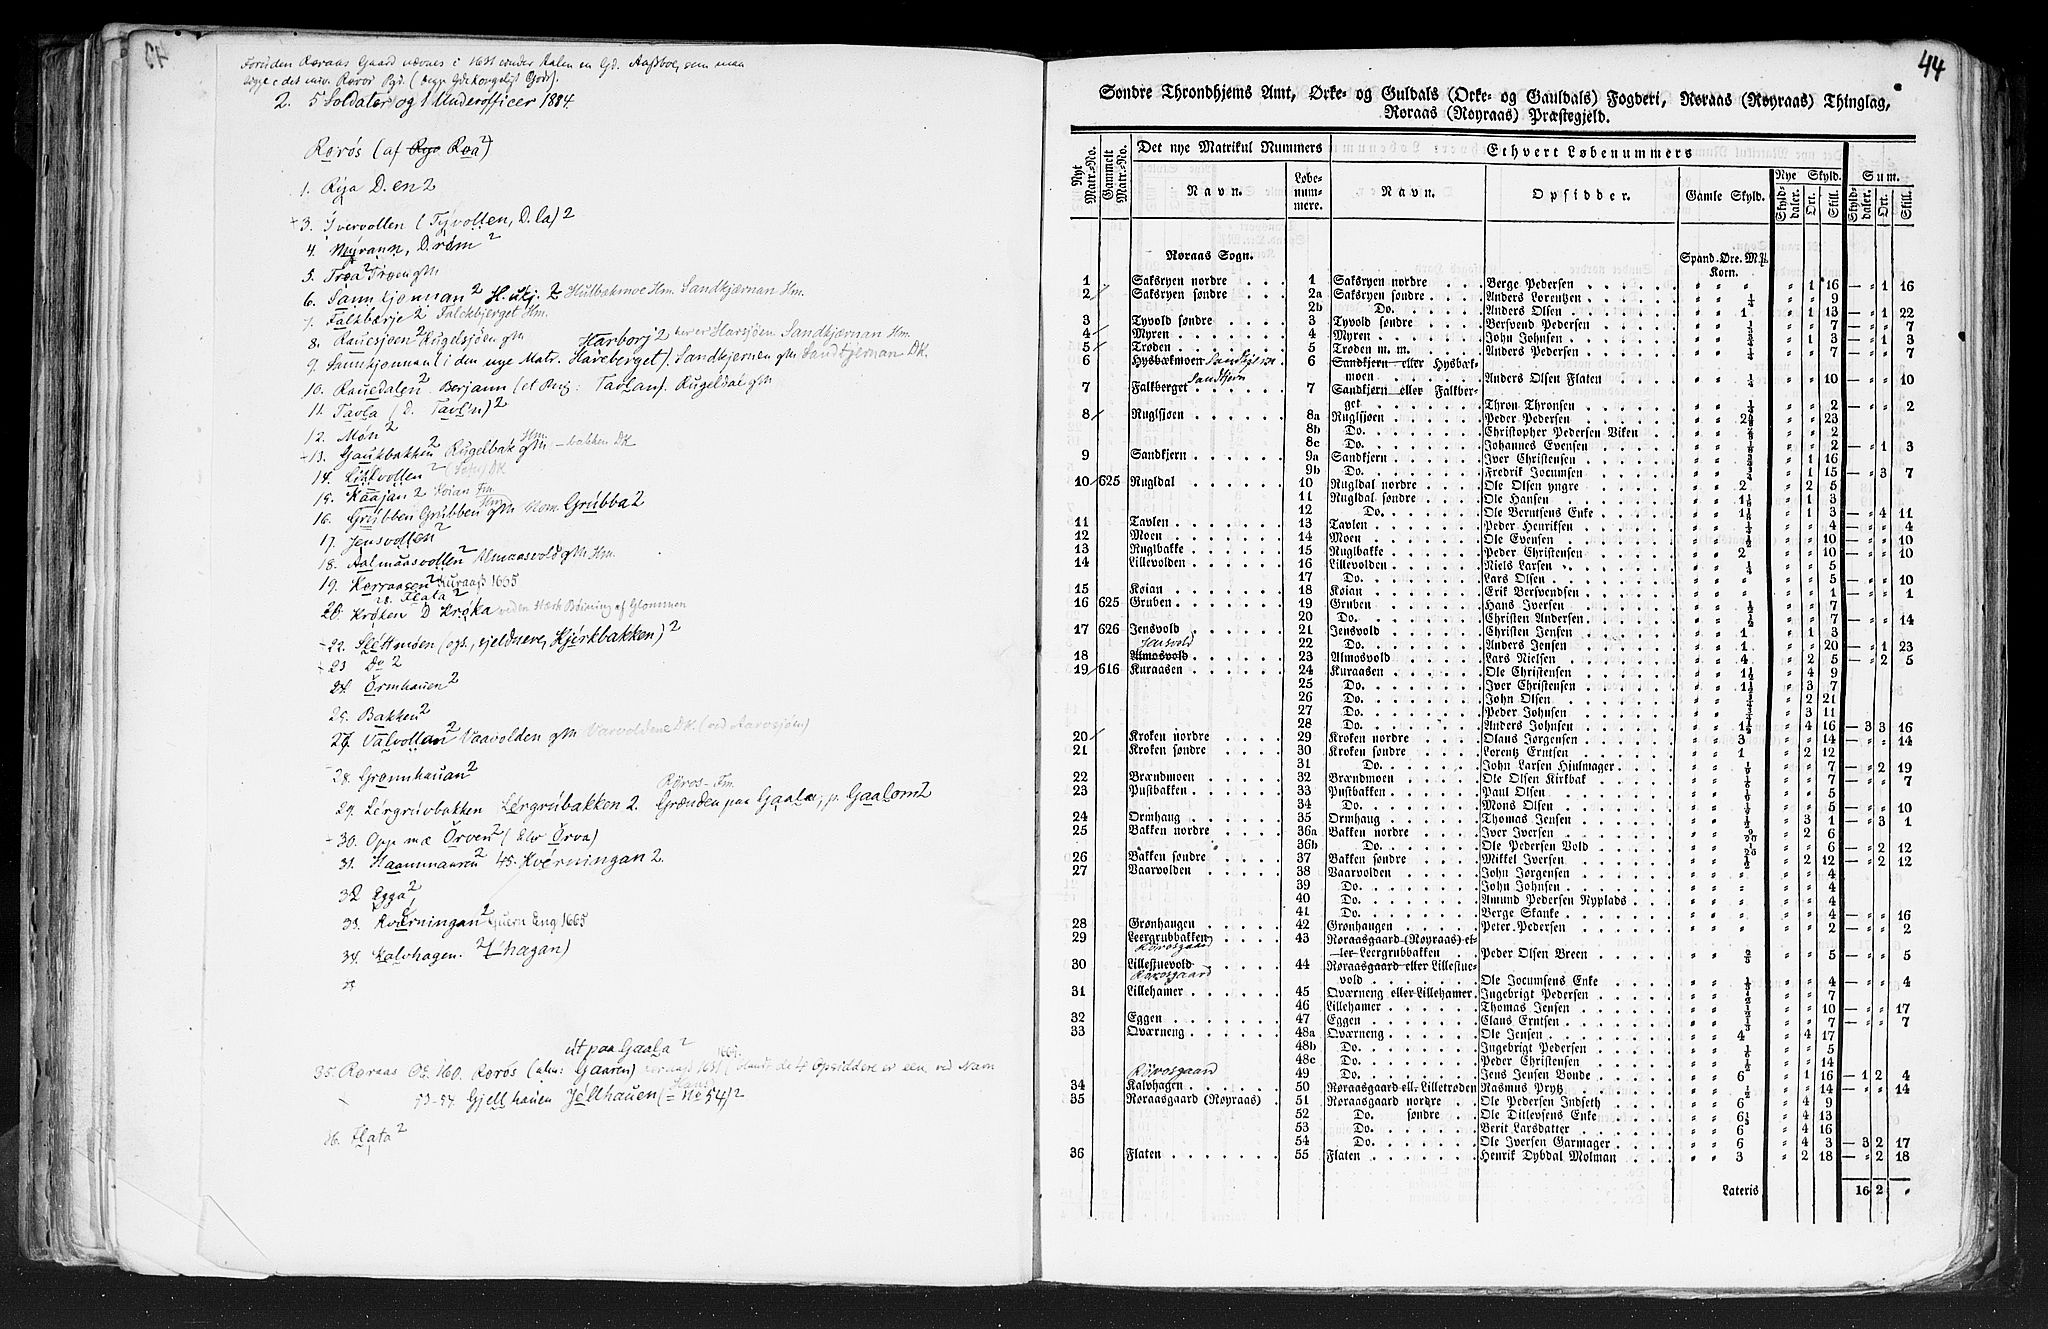 Foruden Røraas Gaard nævnes i 1631 under Aalen en Gd. Aasboe, som maa
ligge i det nuv. Røros Pgd.
2. 5 Soldater og 1 Underofficer 1884.
Røros (af Rya Røa 2)
1. Rya D. en 2
3. Ivervollen (Tyvollen, D. la) 2
4. Myrann, D. róm 2
5. Trøa 2 Trøen gM
6. Sannkjonnan 2 H. utj. 2 Hulbakmoe Hm. Sandkjærnan Hm.
7. Falkbærje 2 Falckbjerget Hm.
8. Rauesjøen 2 Rugelsjøen gM Harborj 2 Sandkjærnan Hm.
9. Sannkjonnan (i den nye Matr. Hareberget). Sandkjernen gM Sandkjernan DK.
10. Rauedalen 2 Rugeldal gM
11. Tavla (D. Tavl'n) 2
12. Món 2
13. Gaukbakken 2 Rugelbak gM Hm. -bakken DK
14. Lislvollen 2
15. Kaajan 2 Koian Fm.
16. Grúbben Grubben gM Hm. Grúbba 2
17. Jensvollen 2
18. Aalmaasvollen 2 Almaasvold gM Hm.
19. Korraasen 2 Kuraass 1665
28. Flata 2
20. Króken D Króka ved en stærk Bøining af Glommen
22. Sléttmóen (ogs., sjeldnere, Kjørkbakken) 2
23 Do 2
24. Ormhauen 2
25. Bakken 2
27. Valvollan 2 Vaavolden gM Varvoldene DK. (ved Aarosjøen)
28. Grønnhauan 2
Røros-Fm.
29. Lérgrúvbakken Lérgrúbakken 2. Grønden paa Gaala; p. Gaalom 2
30. Opp mæ Örven 2 (eller Örva)
31. Haammaaren 2 45. Kvérningan 2.
32 Egga 2
33. Kvérningan 2 Quern Eng 1665
34. Kalvhagen. 2 (-hagan)
ut paa Gaala 2
35. Røraas 1631 (blandt de 4 Opsiddere er een, ved Navn
53-54. Gjellhauen Jellhauen (= No 54) 2
36. Flata 2
44
Søndre Throndhjems Amt, Ørke- og Guldals (Orke- og Gauldals) Fogderi, Røraas (Røyraas) Thinglag,
Røraas (Røyraas) Præstegjeld.
Nye Matr.-No. Gammelt Matr.-No. Det nye Matrikul Nummers Ethvert Løbenummers
Navn. Løbenummere. Navn. Opsidder. Gamle Skyld. Nye Skyld. Sum.
Skylddaler. Ort. Skill. Skylddaler. Ort. Skill.
Røraas Sogn. Spand. Øre. Mkl.
Korn.
1 Saksryen nordre 1 Saksryen nordre Berge Pedersen " " " " 1 16 — " 1 16
2 Saksryen søndre 2a Saksryen søndre Anders Lorentzen " " 1/4 " " 9
2b Do. Anders Olsen " " 1 " 1 13 — " 1 22
3 Tyvold søndre 3 Tyvold søndre Bersvend Pedersen " " 7 — " " 7
4 Myren 4 Myren John Johnsen " 1 3 — " 1 3
5 Trøden 5 Trøden m. m. Anders Pedersen " " 7 — " " 7
6 Hysbækmoen Sandkjern 6 Sandkjern eller Hysbæk-
moen Anders Olsen Flaten " " 1/4 " " 10 — " " 10
7 Falkberget Sandkjern 7 Sandkjern eller Falkber-
get Thron Thronsen " " 2 — " " 2
8 Ruglsjøen 8a Ruglsjøen Peder Pedersen " " 23
8b Do. Christopher Pedersen Viken " " 2
8c Do. Johannes Evensen " " 2 — " 1 3
9 Sandkjern 9a Sandkjern Iver Christensen " 1 16
9b Do. Fredrik Jocumsen " 1 15 — " 3 7
10 625 Rugldal 10 Rugldal nordre Ole Olsen yngre " " 2 " 2 5
11 Rugldal søndre Ole Hansen " " 1½ " 1 3
12 Do. Ole Berntsens Enke " " 1½ " 1 3 — " 4 11
11 Tavlen 13 Tavlen Peder Henriksen " " 4 — " " 4
12 Moen 14 Moen Ole Evensen " " 10 — " " 10
13 Ruglbakke 15 Ruglbakke Peder Christensen " " 2 " " 10 — " " 10
14 Lillevolden 16 Lillevolden Niels Larsen " " 1/4 " " 5
17 Do. Lars Olsen " " " " " 5 — " " 10
15 Koian 18 Koian Erik Bersvendsen " " " " " 1 — " " 1
16 625 Gruben 19 Gruben Hans Iversen " " ½ " " 7
20 Do. Christen Andersen " " ½ " " 7 — " " 14
17 626 Jensvold 21 Jensvold Christen Jensen " " 1 " 1 3
22 Do. Anders Jensen " " 1 " " 20 — " 1 23
18 Almosvold Jensvold 23 Almosvold Lars Nielsen " " 4 " 2 5 — " 2 5
19 616 Kuraasen 24 Kuraasen Ole Christensen " " 1½ " 4 9
25 Do. Iver Christensen " 3 7
26 Do. John Olsen " 2 21
27 Do. Peder Johnsen " 3 11
28 Do. Anders Johnsen " " 1½ " 4 16 — 3 3 16
20 Kroken nordre 29 Kroken nordre Olaus Jørgensen " " 3 " " 14 — " " 14
21 Kroken søndre 30 Kroken søndre Lorentz Erntsen " " 1 " 2 12
31 Do. John Larsen Hjulmager " " 7 — " 2 19
22 Brændmoen 32 Brændmoen Ole Olsen Kirkbak " " 7 — " " 7
23 Pustbakken 33 Pustbakken Paul Olsen " " 5
34 Do. Mons Olsen " " 5 — " " 10
24 Ormhaug 35 Ormhaug Thomas Jensen " 3 1 — " 3 1
25 Bakken nordre 36a Bakken nordre Iver Iversen " 2 6
36b Do. Ole Pedersen Vold " " 6 — " 2 12
26 Bakken søndre 37 Bakken søndre Mikkel Iversen " " ½ " 2 12 — " 2 12
27 Vaarvolden 38 Vaarvolden John Jørgensen " " " " " 4
39 Do. John Johnsen " " " " " 4
40 Do. Amund Pedersen Nyplads " " " " " 4
41 Do. Berge Skanke " " " " " 4 — " " 16
28 Grønhaugen 42 Grønhaugen Peter Pedersen " " " " " 2 — " " 2
29 Leergrubbakken Rørosgaard 43 Røraasgaard (Røyraas) el-
ler Leergrubbakken Peder Olsen Breen " " 5 — " " 5
30 Lillestuevold Rørosgaard 44 Røraasgaard eller Lillestue-
vold Ole Jocumsens Enke " " 4 — " " 4
31 Lillehamer 45 Qværneng eller Lillehamer Ingebrigt Pedersen " " 7
46 Lillehamer Thomas Jensen " " 10 — " " 17
32 Eggen 47 Eggen Claus Erntsen " " 7 — " " 7
33 Qværneng 48a Qværneng Ole Jensen " " 4 " 4 17
48b Do. Ingebrigt Pedersen " " 5
48c Do. Peder Christensen " " 14
49 Do. Jens Jensen Bonde " " 6 " 1 16 — 1 2 4
Rørosgaard
34 Kalvhagen 50 Røraasgaard ell. Lilletrøden Rasmus Prytz " " ½ " " 14 — " " 14
35 Røraasgaard (Røyraas) 51 Røraasgaard nordre Ole Pedersen Indseth " " 6 " 4 9
52 Do. søndre Ole Ditlevsens Enke " " 6⅓ " 4 13
53 Do. Berit Larsdatter " " 6 " 4 16
54 Do. Ole Iversen Garmager " " 6 " 4 3 — 3 2 17
36 Flaten 55 Flaten Henrik Dybdal Molman " " 3 " 2 18 — " 2 18
Lateris 16 2 "